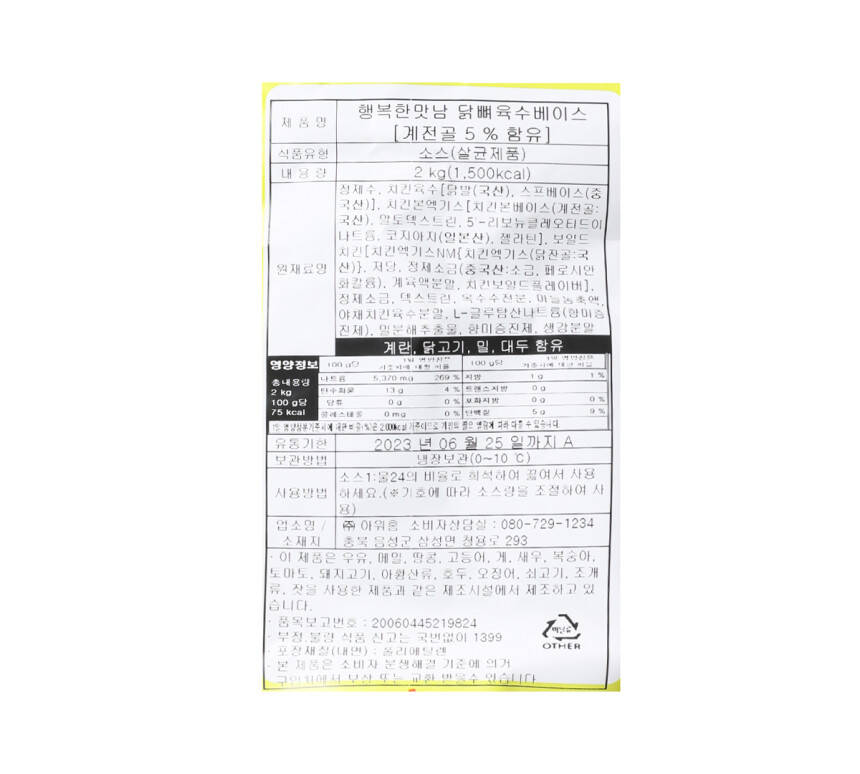 제 품 명
행복한맛남 닭뼈육수베이스
[계전골 5 % 함유]
식품유형
소스(살균제품)
내 용 량
2 kg(1,500kcal)
원재료명
정제수, 치킨육수[닭발(국산), 스프베이스(중
국산)], 치킨본엑기스[치킨본베이스(계전골:
국산), 말토덱스트린, 5'-리보뉴클레오티드이
나트륨, 코지아지(일본산), 젤라틴], 보일드
치킨[치킨엑기스NM{치킨엑기스(닭잔골:국
산)}, 저당, 정제소금(중국산:소금, 페로시안
화칼륨), 계육액분말, 치킨보일드플레이버],
정제소금, 덱스트린, 옥수수전분, 마늘농축액,
야채치킨육수분말, L-글루탐산나트륨(향미증
진제), 밀분해추출물, 향미증진제, 생강분말
계란, 닭고기, 밀, 대두 함유
영양정보
총내용량
2 kg
100 g당
75 kcal
100 g당
1일 영양성분
기준치에 대한 비율
100 g당
1일 영양성분
기준치에 대한 비율
나트륨 5,370 mg 269 % 지방 1 g 1 %
탄수화물 13 g 4 % 트랜스지방 0 g
당류 0 g 0 % 포화지방 0 g 0 %
콜레스테롤 0 mg 0 % 단백질 5 g 9 %
1일 영양성분기준치에 대한 비율(%)은 2,000kcal 기준이므로 개인의 필요 열량에 따라 다를 수 있습니다.
유통기한
2023 년 06 월 25 일까지 A
보관방법
냉장보관(0~10 ℃)
사용방법
소스1:물24의 비율로 희석하여 끓여서 사용
하세요.(※기호에 따라 소스량을 조절하여 사
용)
업소명 /
소재지
㈜ 아워홈 소비자상담실 : 080-729-1234
충북 음성군 삼성면 청용로 293
· 이 제품은 우유, 메밀, 땅콩, 고등어, 게, 새우, 복숭아,
토마토, 돼지고기, 아황산류, 호두, 오징어, 쇠고기, 조개
류, 잣을 사용한 제품과 같은 제조시설에서 제조하고 있
습니다.
· 품목보고번호 : 20060445219824
· 부정.불량 식품 신고는 국번없이 1399
· 포장재질(내면) : 폴리에틸렌
· 본 제품은 소비자 분쟁해결 기준에 의거
구입처에서 보상 또는 교환 받을수 있습니다
비닐류
OTHER